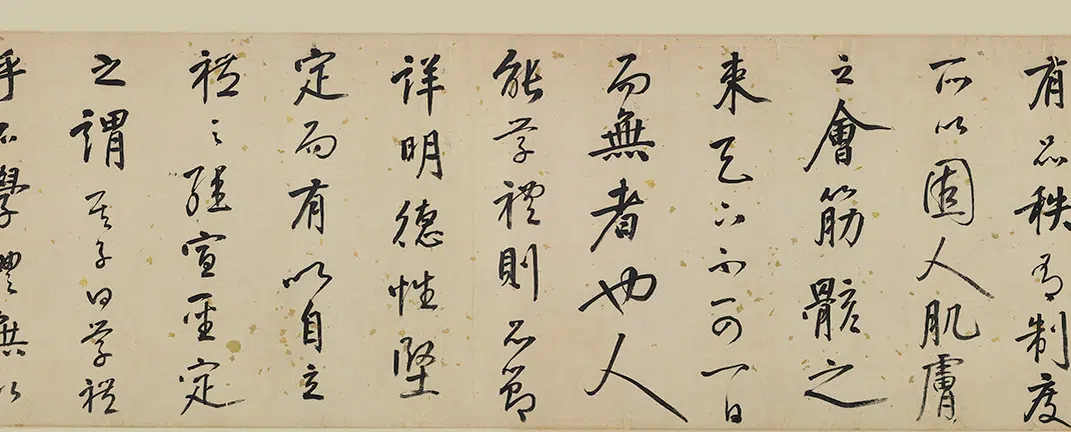 有品秩有制度
所以固人肌膚
之會筋骸之
束天下不可一日
而無者也人
能学禮則品節
詳明德性堅
定而有以自立
禮之經宣聖定
之謂其子曰学禮
乎不學禮無以